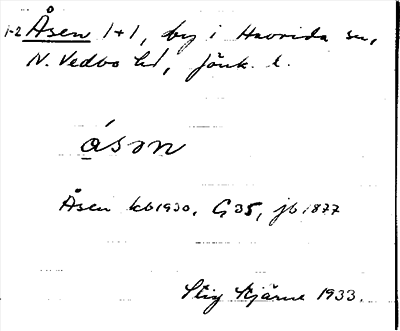 1-2 Åsen 1+1, by i Haurida sn,
N. Vedbo hd, Jönk. l.
åsən
Åsen kb 1930, G 35, jb 1877
Stig Hjärne 1933.